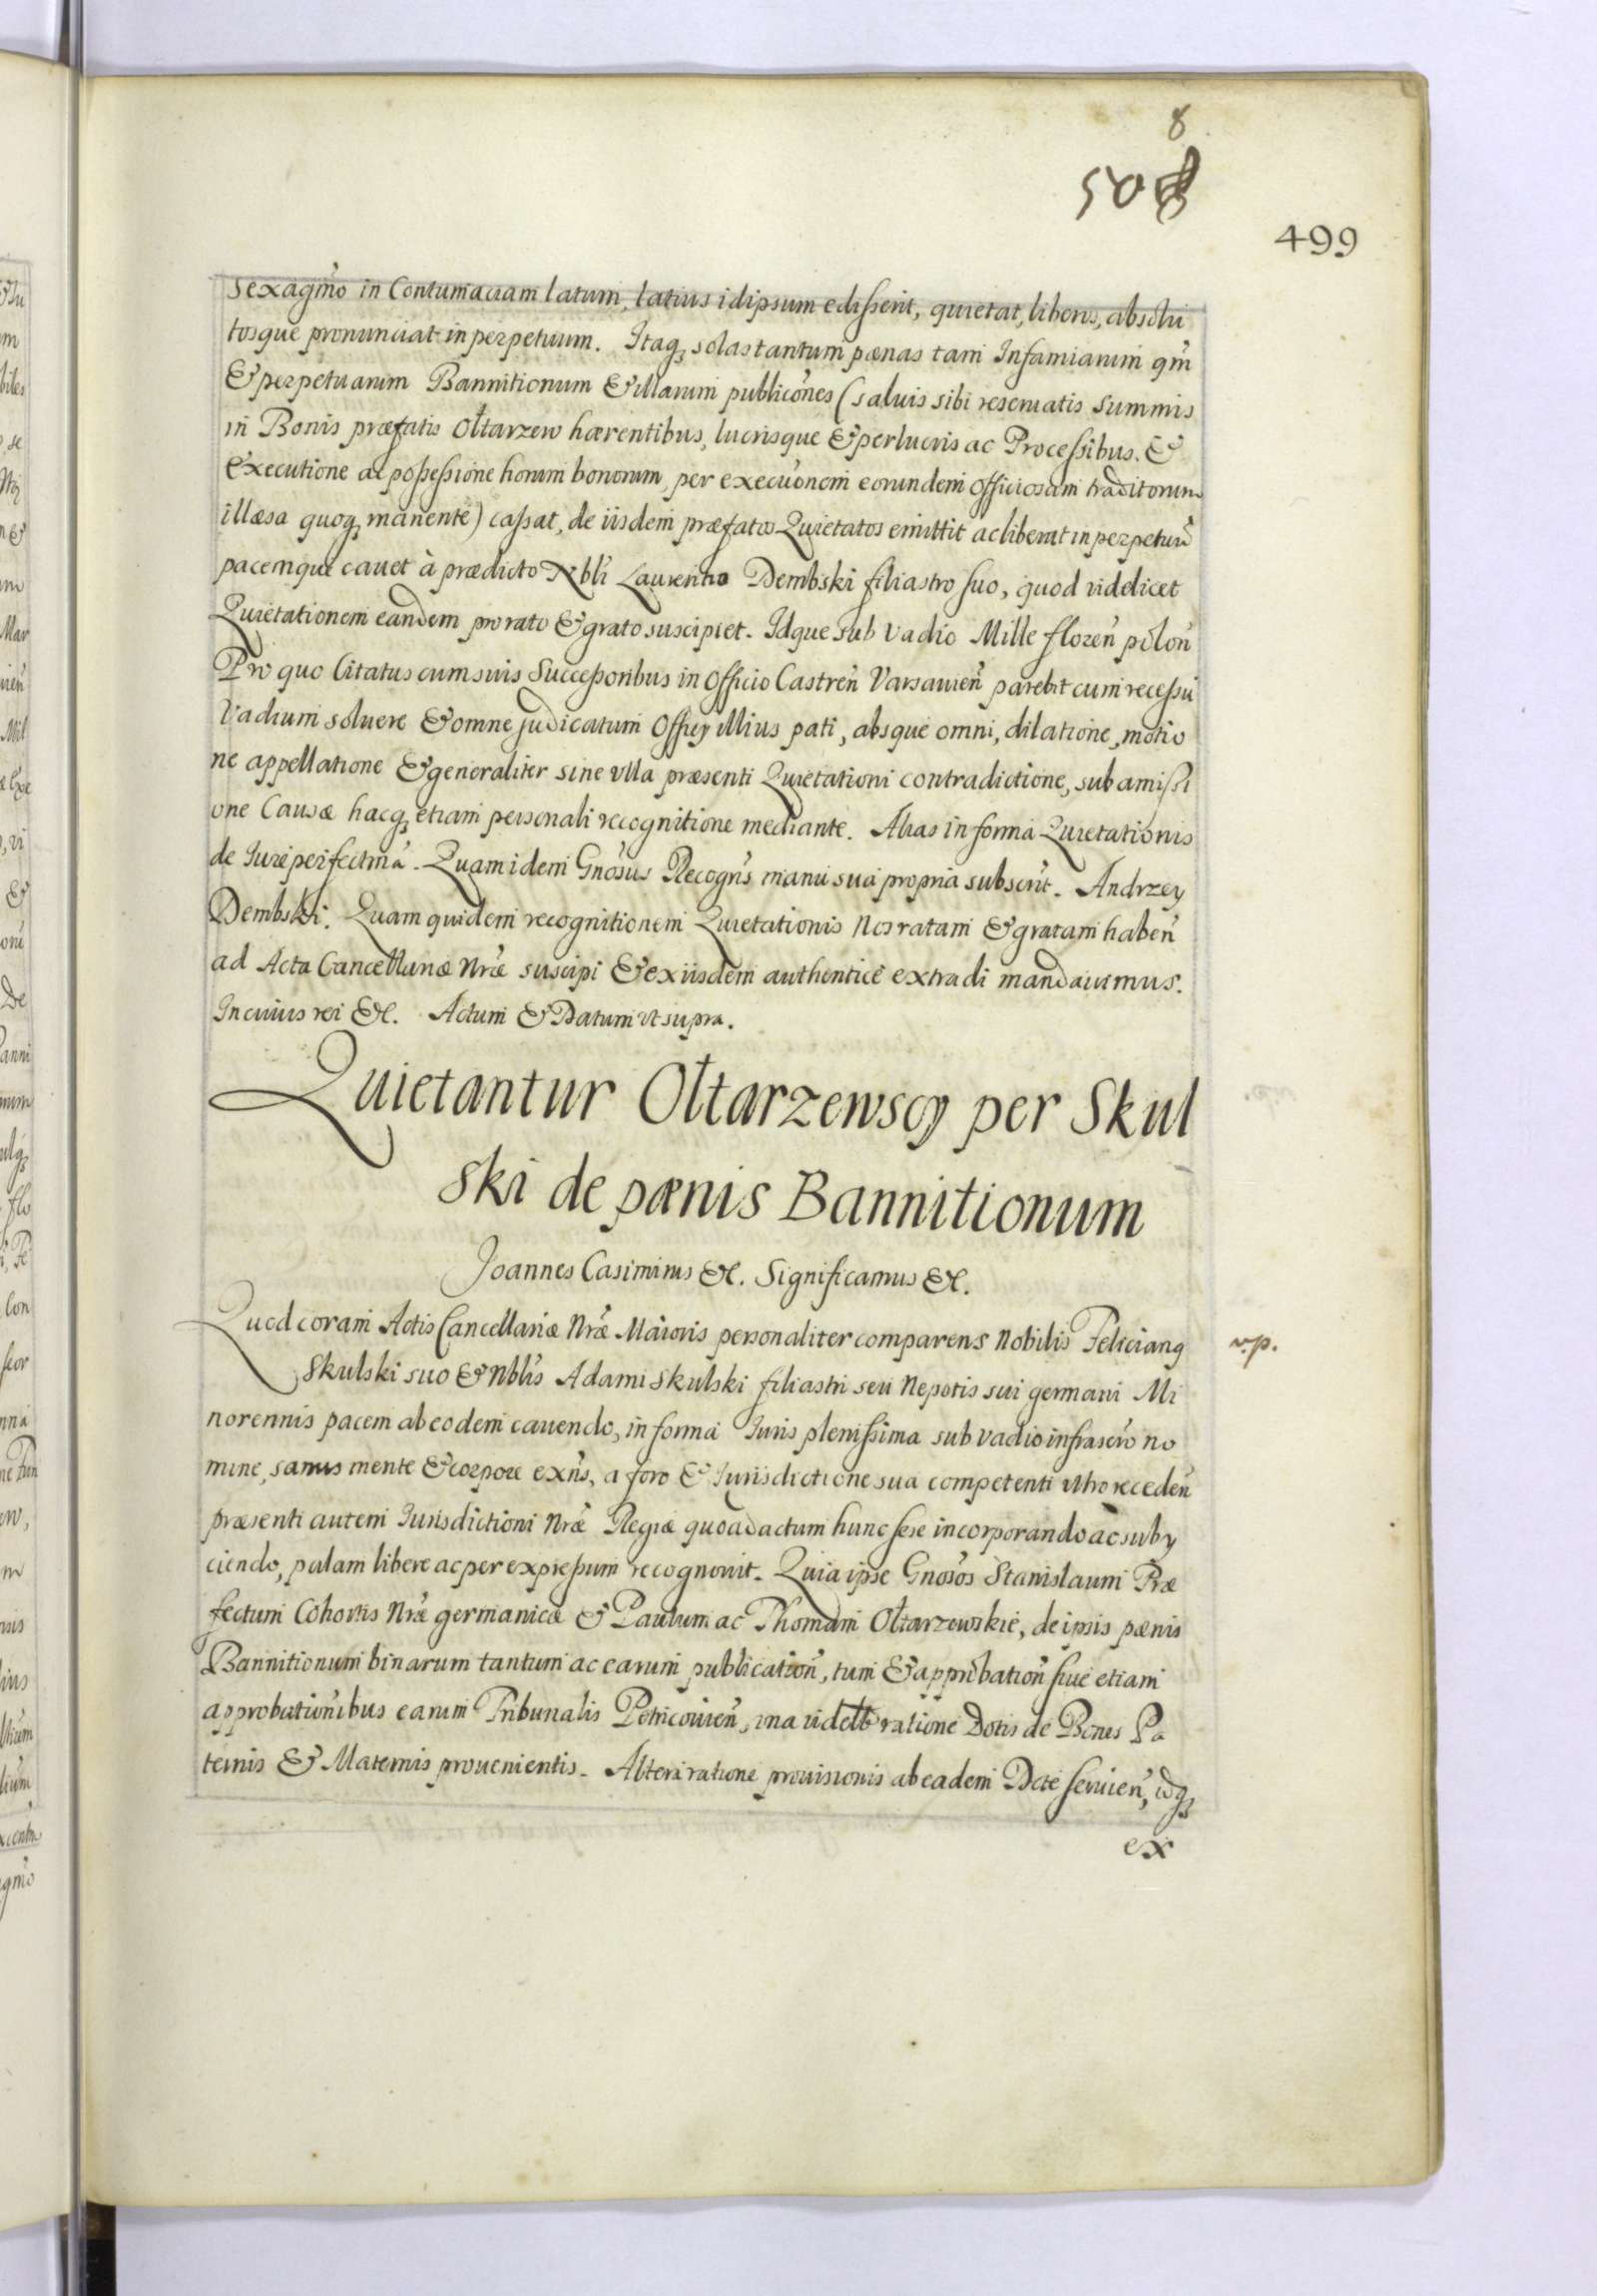 8
508
499
sexagm̃o in Contumaciam latum, latius idipsum edisserit, quietat, liberos, absolu
tosque pronunciat in perpetuum. Itaq; solas tantum pœnas tam Infamiarum qm̃
& perpetuarum Bannitionum & illarum publicõnes (saluis sibi reseruatis summis
in Bonis præfatis Ołtarzew hærentibus, lucrisque & perlucris ac Processibus, &
Executione ac possessione horum bonorum per execuõnem eorundem officiosam traditorum
illæsa quoq; manente) cassat, de iisdem præfatos Quietatos emittit ac liberat in perpetuũ
pacemque cauet à prædicto Nbli Laurentio Dembski filiastro suo, quod videlicet
Quietationem eandem pro rato & grato suscipiet. Idque sub vadio Mille floreñ poloñ
Pro quo Citatus cum suis Successoribus in Officio Castreñ Varsauieñ parebit cum recessu
Vadium soluere & omne judicatum Officij illius pati, absque omni, dilatione, motio
ne appellatione & generaliter sine vlla præsenti Quietationi contradictione, sub amissi
one Causæ hacq; etiam personali recognitione mediante. Alias in forma Quietationis
de Iure perfectm̃a. Quam idem Gnõsus Recogñs manu sua propria subscrit. Andrzey
Dembski. Quam quidem recognitionem Quietationis Nos ratam & gratam habeñ
ad Acta Cancellariæ Nræ suscipi & ex iisdem authentice extradi mandauimus.
In cuius rei &c. Actum & Datum vt supra.
Quietantur Ołtarzewscy per Skul
ski de pœnis Bannitionum
Joannes Casimirus &c. Significamus &c.
Quod coram Actis Cancellariæ Nræ Maioris personaliter comparens Nobilis Felicianq
v.p.
Skulski suo & Nblis Adami Skulski filiastri seu Nepotis sui germani Mi
norennis pacem ab eodem cauendo, in forma Iuris plenissima sub vadio infrascro no
mine, sanus mente & corpore exñs, a foro & Iurisdictione sua competenti vltro recedeñ
præsenti autem Iurisdictioni Nræ Regiæ quoad actum hunc sese incorporando ac subij
ciendo, palam libere ac per expressum recognouit. Quia ipse Gnosos Stanislaum Præ
fectum Cohortis Nræ germanicæ & Paulum ac Thomam Ołtarzewskie, de ipsis pœnis
Bannitionum binarum tantum ac earum publicatioñ, tum & approbatioñ siue etiam
approbationibus earum Tribunalis Petricouieñ, vna videlt ratione Dotis de Bonis Pa
ternis & Maternis prouenientis. Altera ratione prouisionis ab eadem Dote seruieñ, idq;
ex